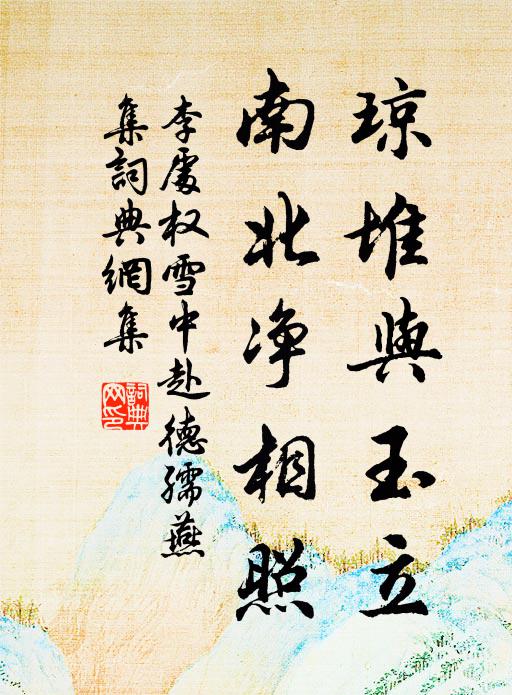 琼堆與玉立
南北净相照
李處权雪中赴德孺燕
集詞典網集
詞典網印